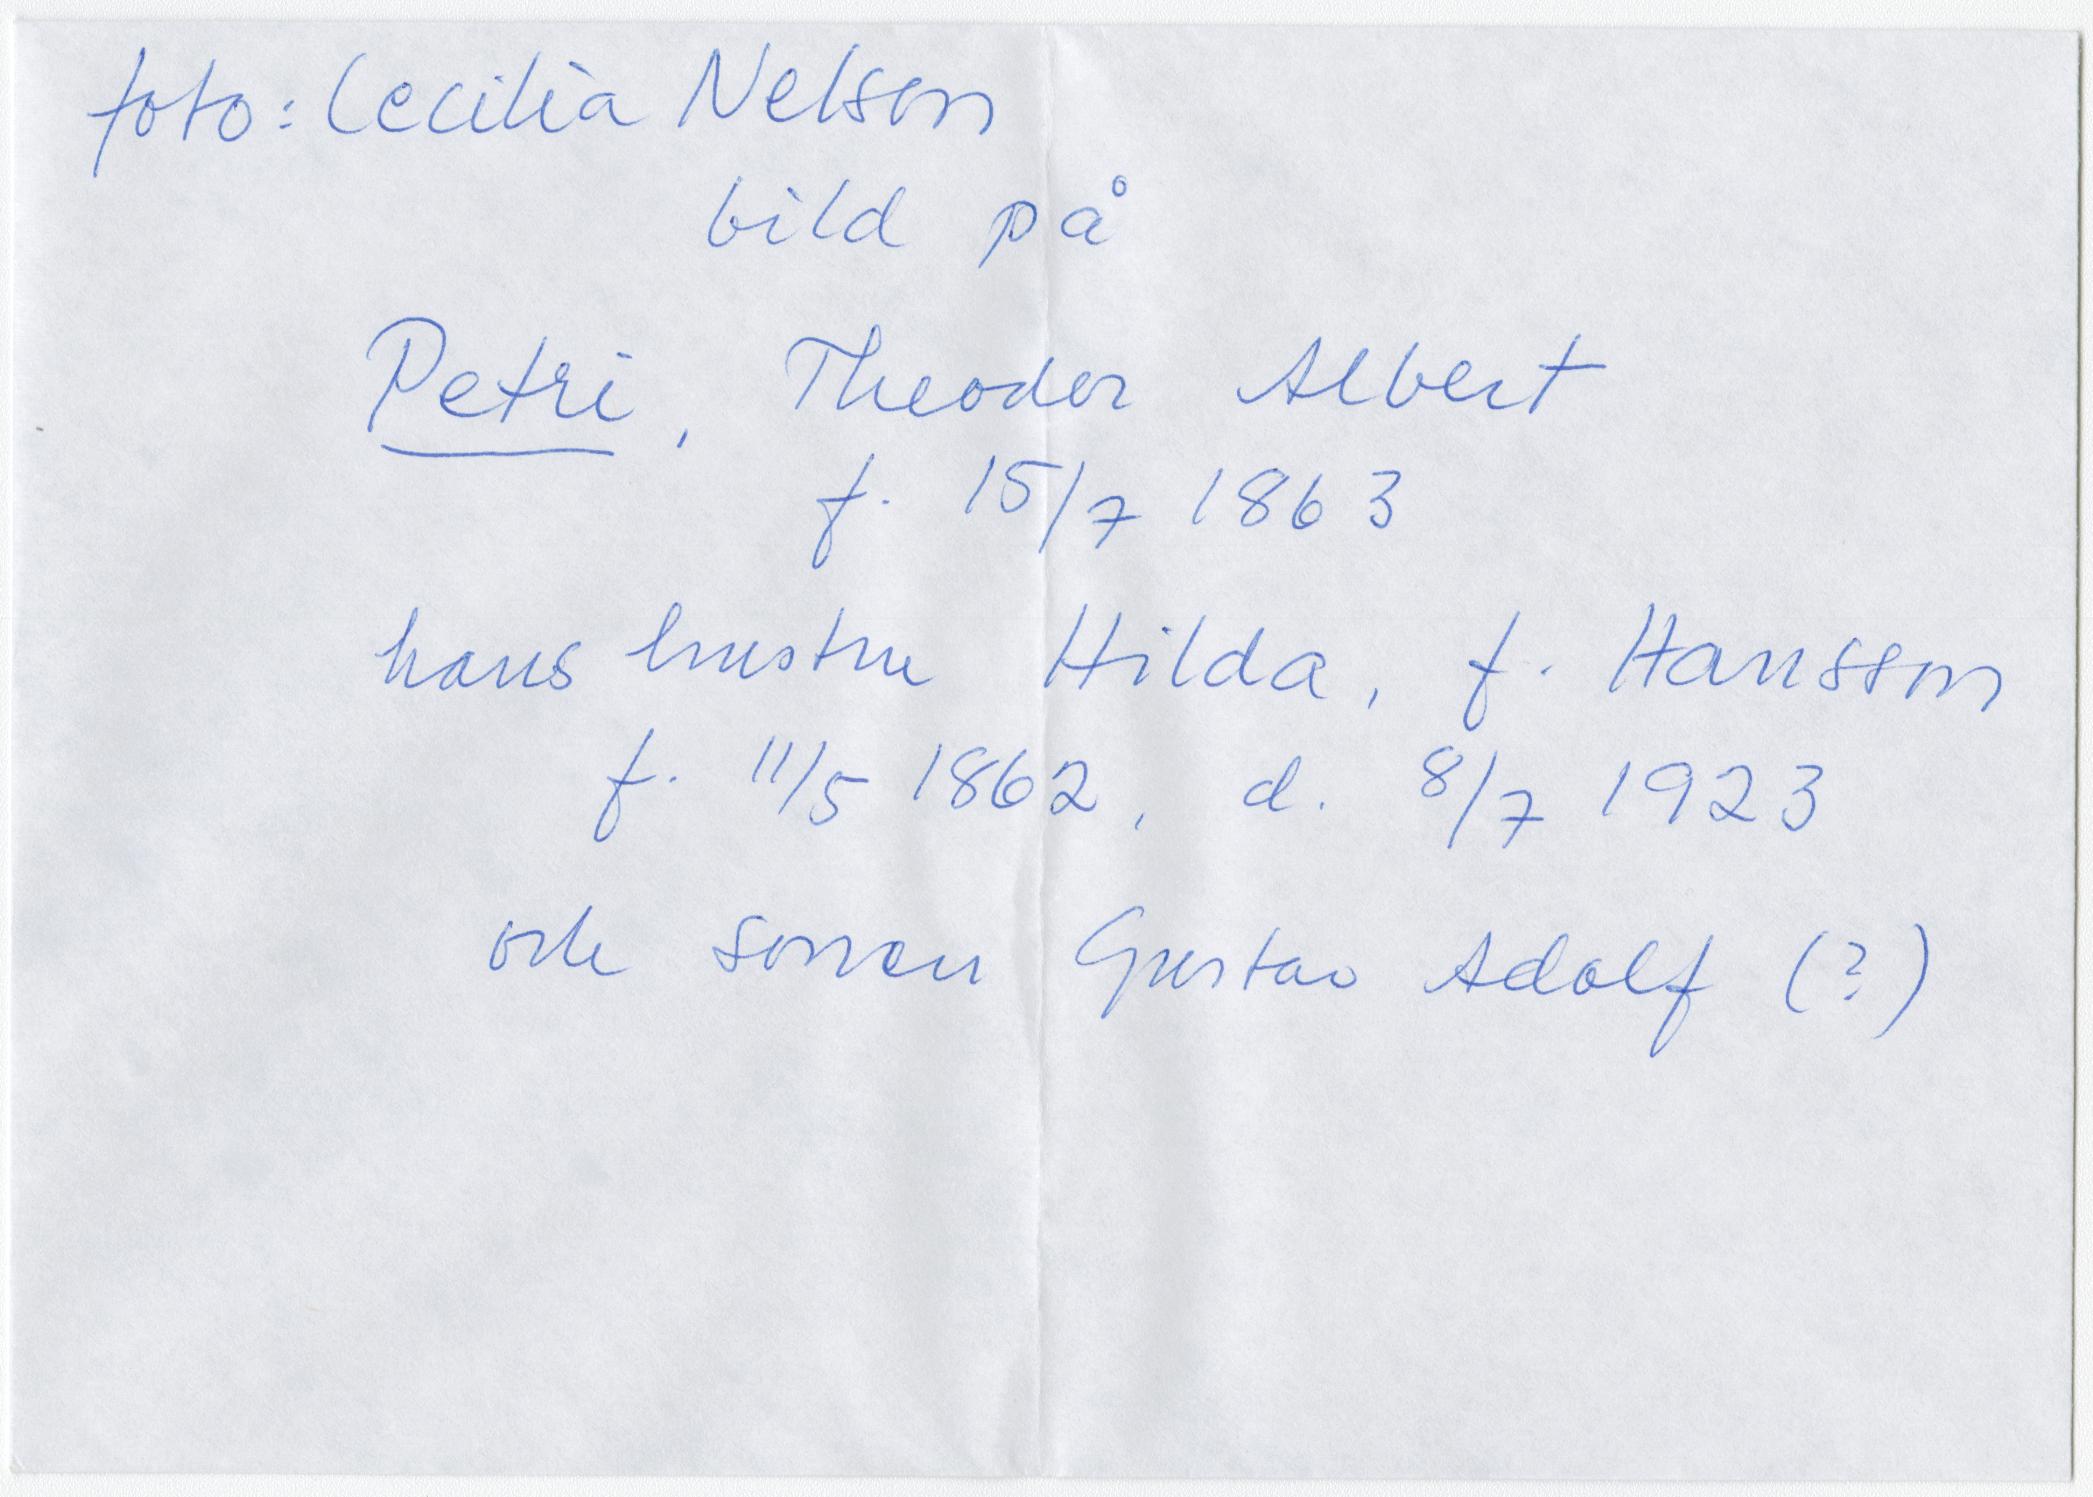 foto: Cecilia Nelson
bild på
Petri, Theodor Albert
f. 15/7 1863
hans hustru Hilda, f. Hansson
f. 11/5 1862, d. 8/7 1923
och sonen Gustav Adolf (?)